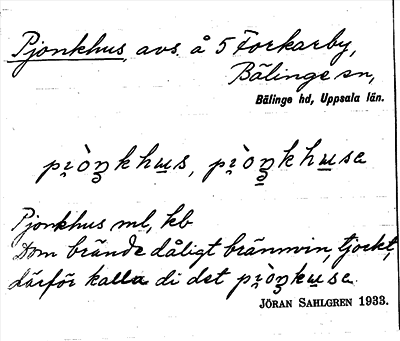 Pjonkhus, avs. å 5 Forkarby,
Bälinge sn,
Bälinge hd, Uppsala län.
Pjonkhus ml, kb
Dom brände dåligt brännvin, tjockt,
därför kalla di det
JÖRAN SAHLGREN 1933.